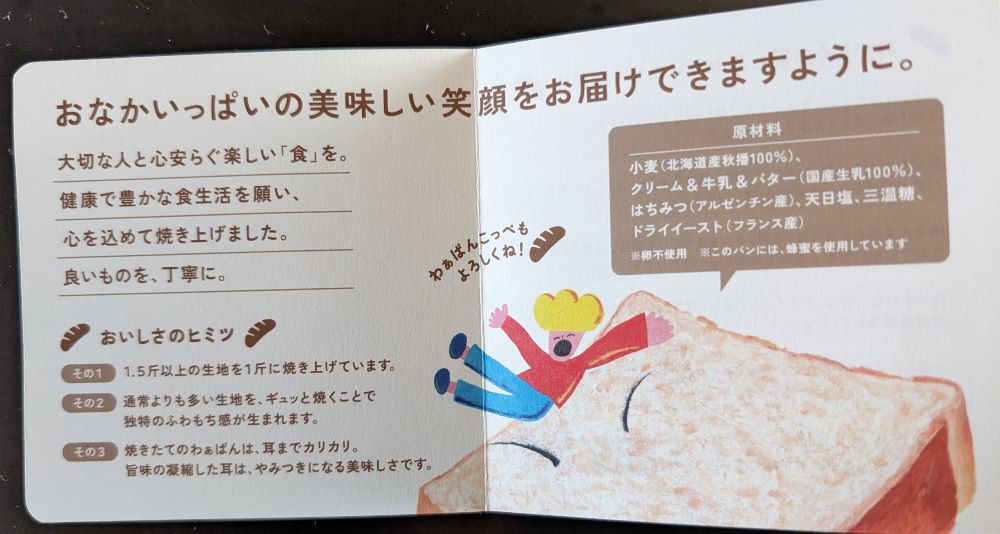 おなかいっぱいの美味しい笑顔をお届けできますように。
大切な人と心安らぐ楽しい「食」を。
健康で豊かな食生活を願い、
心を込めて焼き上げました。
良いものを、丁寧に。
おいしさのヒミツ
その1 1.5斤以上の生地を1斤に焼き上げています。
その2 通常よりも多い生地を、ギュッと焼くことで
独特のふわもち感が生まれます。
その3 焼きたてのわぁぱんは、耳までカリカリ。
旨味の凝縮した耳は、やみつきになる美味しさです。
わぁぱんこっぺも
よろしくね!
原材料
小麦(北海道産秋播100%)、
クリーム&牛乳&バター(国産生乳100%)、
はちみつ(アルゼンチン産)、天日塩、三温糖、
ドライイースト(フランス産)
※卵不使用 ※このパンには、蜂蜜を使用しています